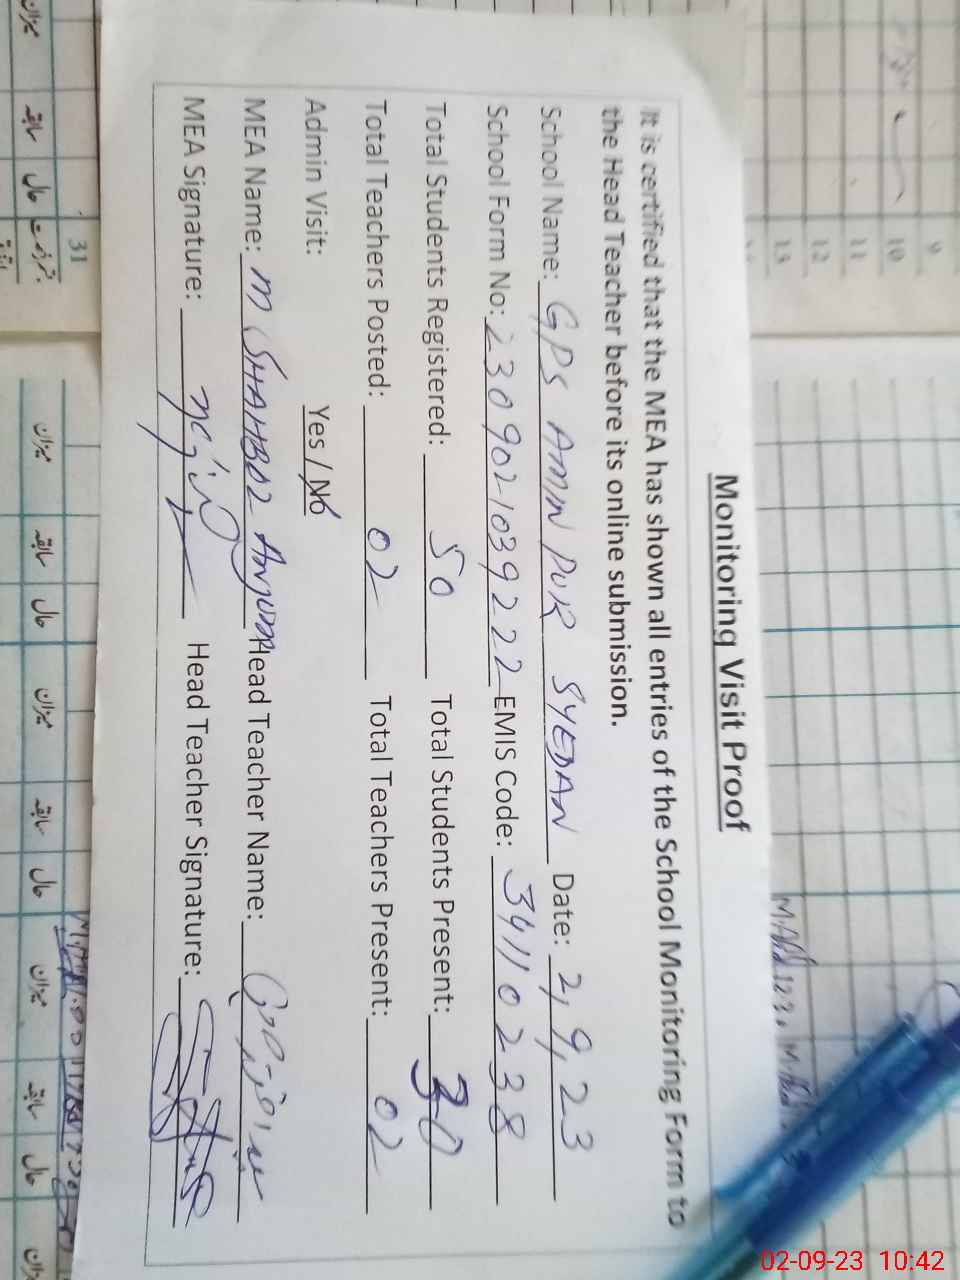 Monitoring Visit Proof
It is certified that the MEA has shown all entries of the School Monitoring Form to
the Head Teacher before its online submission.
School Name: GPS AMIN PUR SYEDAN Date: 2,9,23
School Form No: 230902-1039222 EMIS Code: 34110238
Total Students Registered: 50 Total Students Present: 30
Total Teachers Posted: 02 Total Teachers Present: 02
Admin Visit: Yes / No
MEA Name: M SHAHBAZ Anjum Head Teacher Name:
MEA Signature: Head Teacher Signature:
9
10
11
12
13
31
میزان سابقہ حال
میزان سابقہ حال میزان سابقہ حال میزان سابقہ حال میزان
02-09-23 10:42